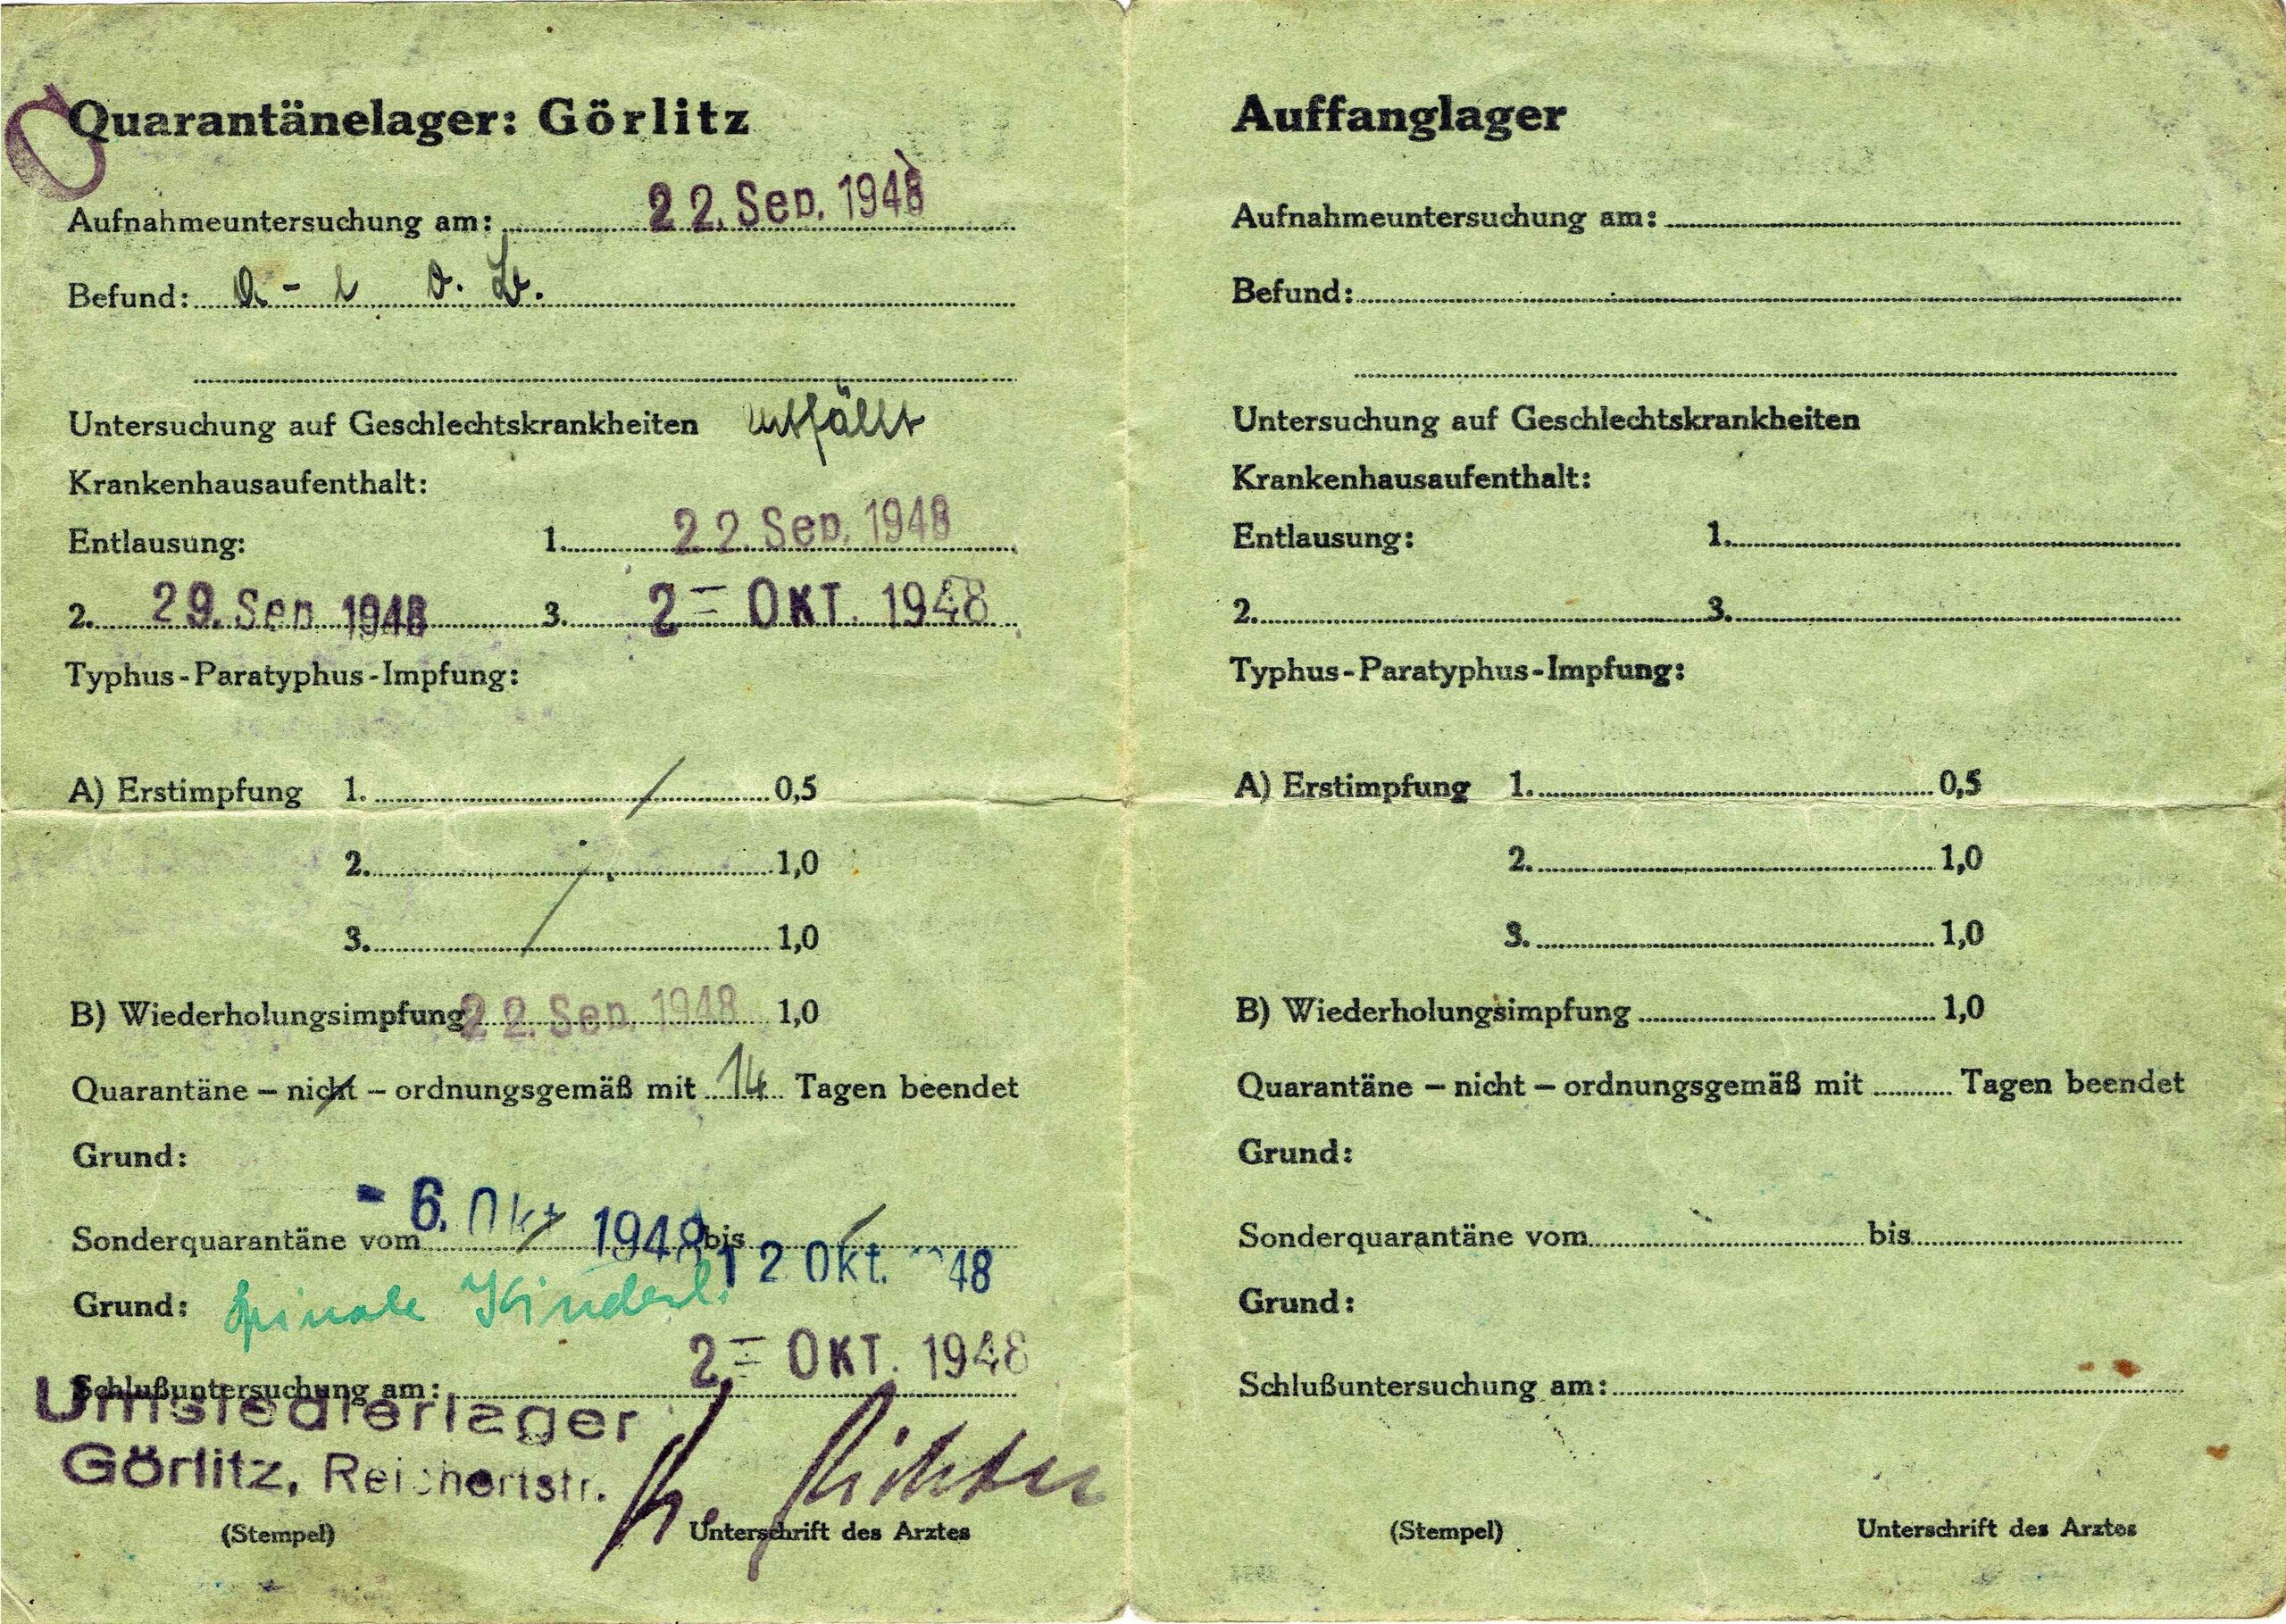 C
Quarantänelager: Görlitz
Aufnahmeuntersuchung am: 22. Sep. 1948
Befund: o. B.
Untersuchung auf Geschlechtskrankheiten entfällt
Krankenhausaufenthalt:
Entlausung: 1. 22. Sep. 1948
2. 29. Sep. 1948 3. 2 - OKT. 1948
Typhus-Paratyphus-Impfung:
A) Erstimpfung 1. 0,5
2. 1,0
3. 1,0
B) Wiederholungsimpfung 22. Sep. 1948 1,0
Quarantäne – nicht – ordnungsgemäß mit 14 Tagen beendet
Grund:
Sonderquarantäne vom - 6. Okt 1948 bis 12 Okt. 48
Grund: spinale Kinderl.
2 - OKT. 1948
Schlußuntersuchung am:
Umsiedlerlager
Görlitz, Reichertstr.
Richter
(Stempel) Unterschrift des Arztes
Auffanglager
Aufnahmeuntersuchung am:
Befund:
Untersuchung auf Geschlechtskrankheiten
Krankenhausaufenthalt:
Entlausung: 1.
2. 3.
Typhus-Paratyphus-Impfung:
A) Erstimpfung 1. 0,5
2. 1,0
3. 1,0
B) Wiederholungsimpfung 1,0
Quarantäne – nicht – ordnungsgemäß mit Tagen beendet
Grund:
Sonderquarantäne vom bis
Grund:
Schlußuntersuchung am:
(Stempel) Unterschrift des Arztes